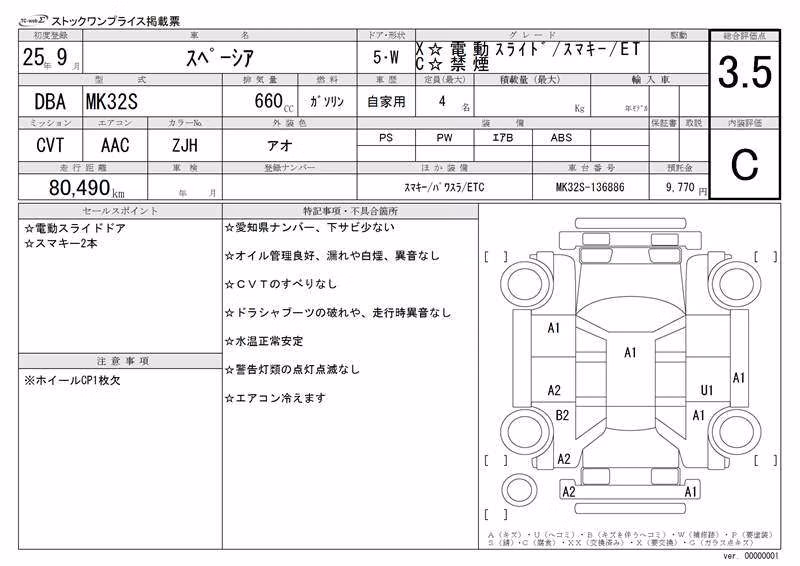 TC-webΣ ストックワンプライス掲載票
初度登録 車名 ドア・形状 グレード 駆動 総合評価点
25年9月 スペーシア 5・W X☆電動スライド/スマキー/ET
C☆禁煙
3.5
型式 排気量 燃料 車歴 定員(最大) 積載量(最大) 輸入車
DBA MK32S 660CC ガソリン 自家用 4名 Kg 年モデル
ミッション エアコン カラーNo. 外装色 装備 保証書 取説 内装評価
CVT AAC ZJH アオ PS PW エアB ABS
C
走行距離 車検 登録ナンバー ほか装備 車台番号 預託金
80,490km 年 月 スマキー/パワスラ/ETC MK32S-136886 9,770円
セールスポイント
☆電動スライドドア
☆スマキー2本
注意事項
※ホイールCP1枚欠
特記事項・不具合箇所
☆愛知県ナンバー、下サビ少ない
☆オイル管理良好、漏れや白煙、異音なし
☆CVTのすべりなし
☆ドラシャブーツの破れや、走行時異音なし
☆水温正常安定
☆警告灯類の点灯点滅なし
☆エアコン冷えます
[ ] [ ]
A1
A1
A1
A2 U1
B2 A1
A2
[ ] [ ]
A2 A1
[ ]
A(キズ)・U(ヘコミ)・B(キズを伴うヘコミ)・W(補修跡)・P(要塗装)
S(錆)・C(腐食)・XX(交換済み)・X(要交換)・G(ガラス点キズ)
ver. 00000001